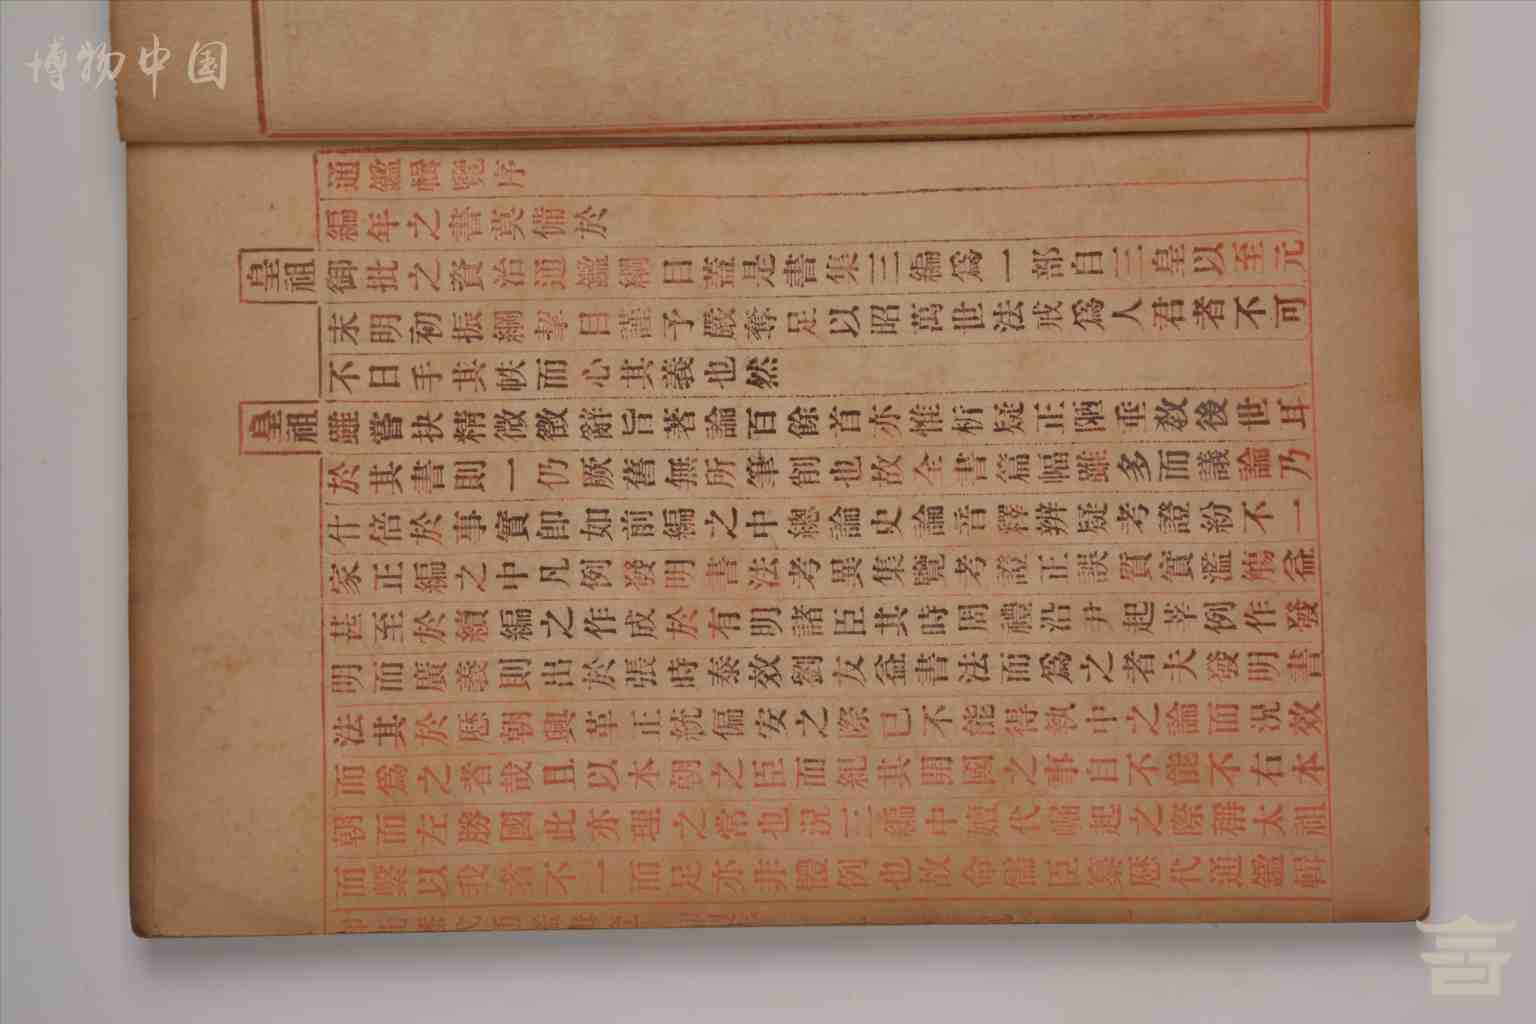 博物中国
通鑑輯覽序
編年之書莫備於
皇祖御批之資治通鑑綱目蓋是書集三編爲一部自三皇以至元
末明初振綱挈目謹予嚴奪足以昭萬世法戒爲人君者不可
不日手其帙而心其義也然
皇祖雖嘗抉精微徵辭旨著論百餘首亦惟析疑正陋垂教後世耳
於其書則一仍厥舊無所筆削也故全書篇幅雖多而議論乃
什倍於事實卽如前編之中總論史論音釋辨疑考證紛不一
家正編之中凡例發明書法考異集覽考證正誤質實濫觴益
甚至於續編之作成於有明諸臣其時周禮沿尹起莘例作發
明而廣義則出於張時泰效劉友益書法而爲之者夫發明書
法其於歷朝興革正統偏安之際已不能得執中之論而況效
而爲之者哉且以本朝之臣而紀其開國之事自不能不右本
朝而左勝國此亦理之常也況三編中嬗代崛起之際稱太祖
而繫以我者不一而足亦非體例也故命儒臣纂歷代通鑑輯